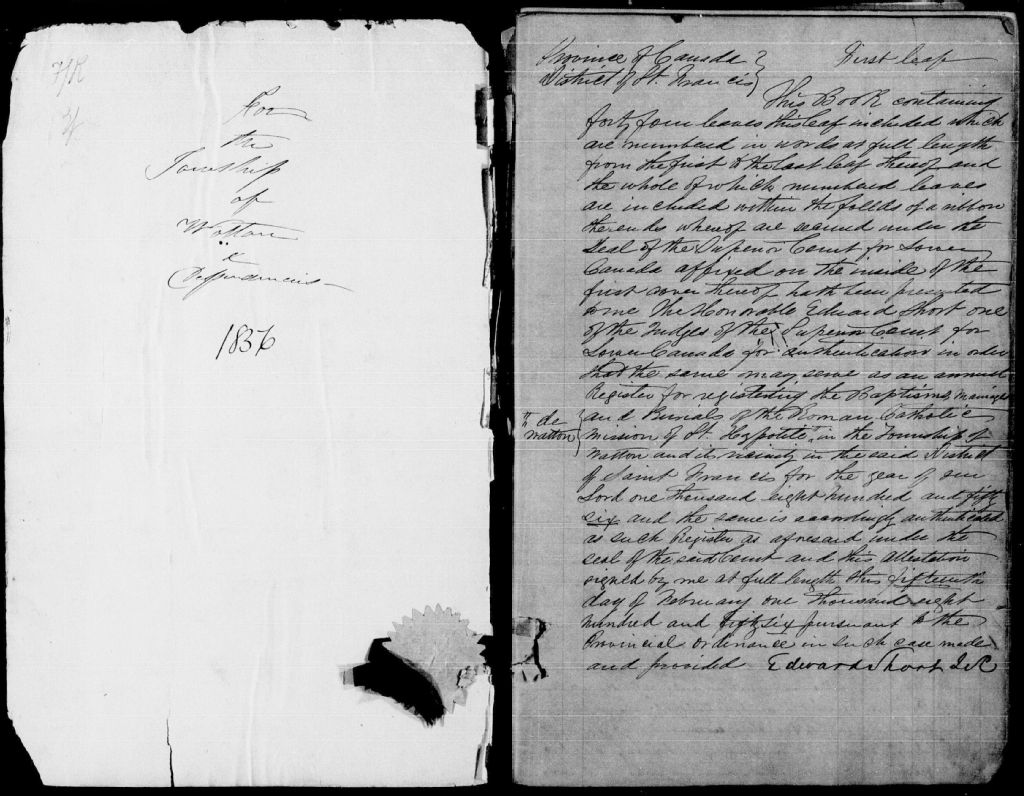 For
the
Township
of
Wotton
&
Dependencies
1856
Province of Canada }
District of St. Francis }
First leaf
This Book containing
forty four leaves this leaf included which
are numbered in words at full length
from the first to the last leaf thereof and
the whole of which numbered leaves
are included within the folds of a ribbon
the ends whereof are secured under the
Seal of the Superior Court for Lower
Canada affixed on the inside of the
first cover thereof hath been presented
to me The Honorable Edward Short one
of the Judges of the Superior Court for
Lower Canada for authentication in order
that the same may serve as an annual
Register for registering the Baptisms, Marriages
and Burials of the Roman Catholic
mission of St. Hypolite, in the Township of
" de
Wotton }
Wotton and its vicinity in the said District
of Saint Francis for the year of our
Lord one thousand eight hundred and fifty
six and the same is accordingly authenticated
as such Register as aforesaid under the
seal of the said Court and this attestation
signed by me at full length this fifteenth
day of February one thousand eight
hundred and fifty six pursuant to the
Provincial Ordinance in such case made
and provided Edward Short